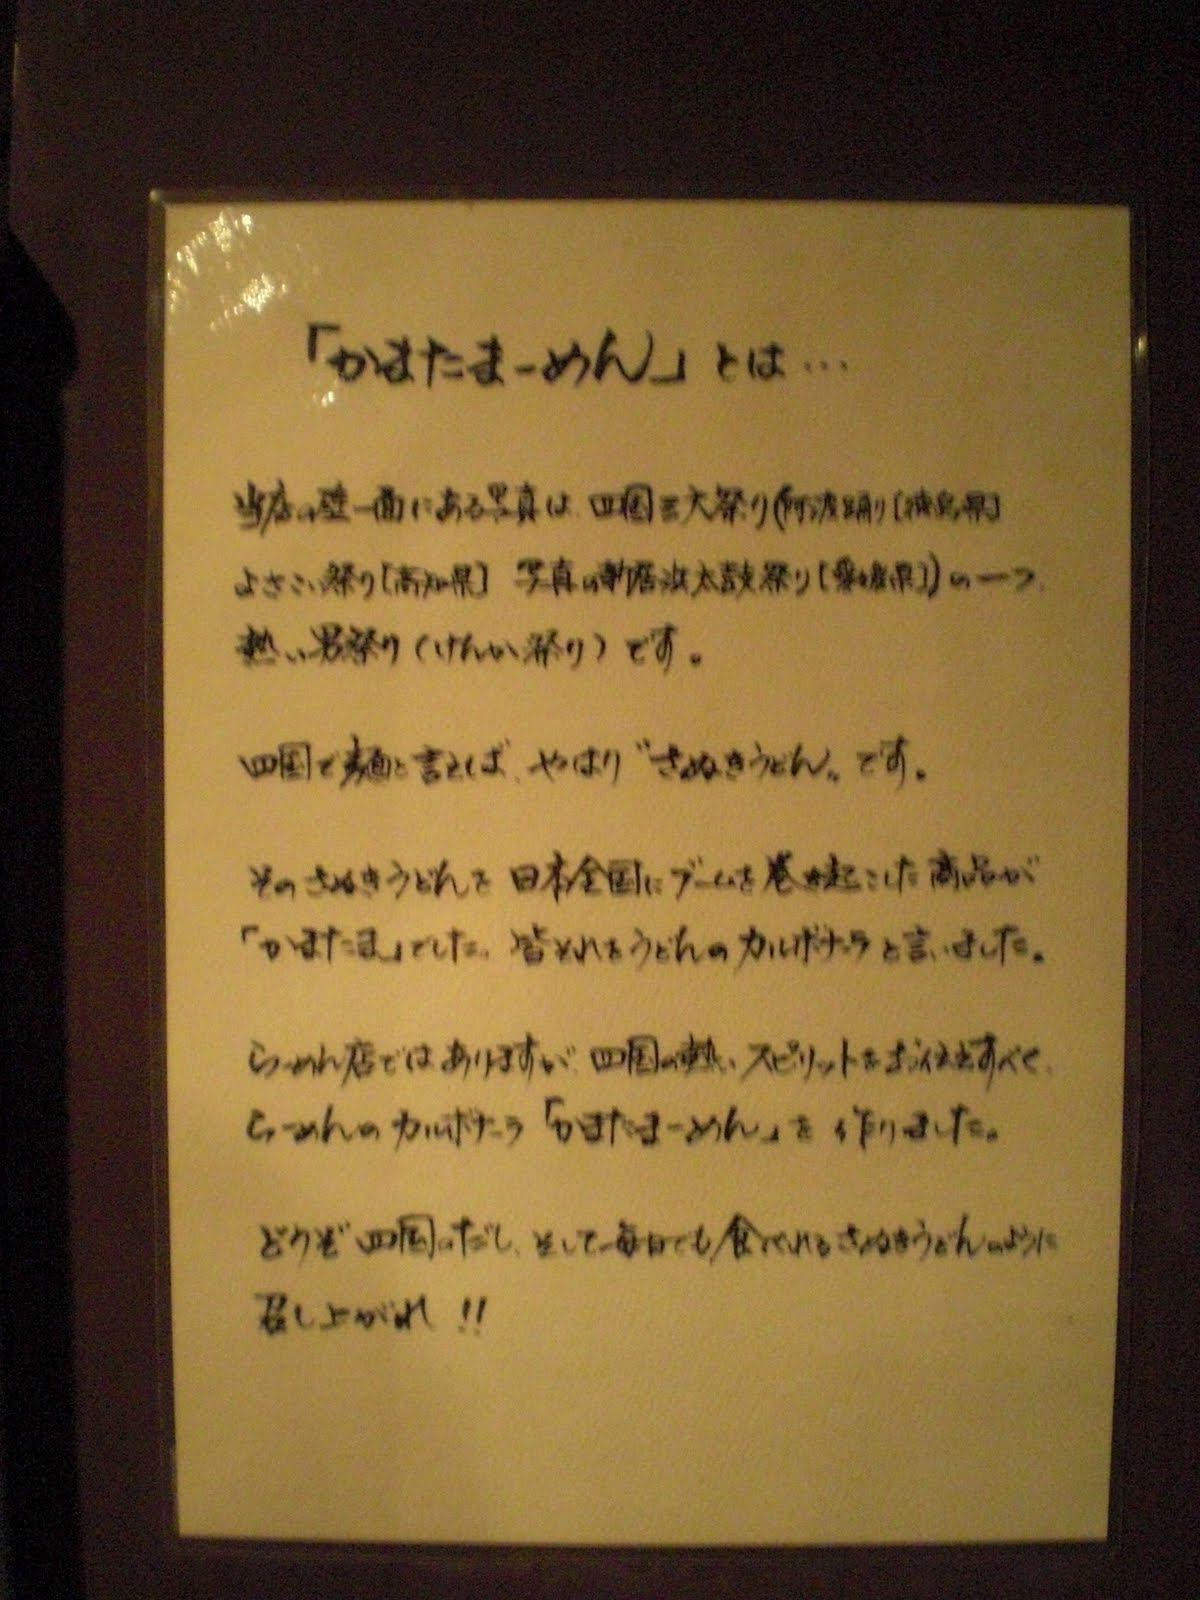 「かまたまーめん」とは…
当店の壁一面にある写真は、四国三大祭り(阿波踊り[徳島県]
よさこい祭り[高知県] 写真の新居浜太鼓祭り[愛媛県])の一つ、
熱い男祭り(けんか祭り)です。
四国で麺と言えば、やはり"さぬきうどん"です。
そのさぬきうどんを日本全国にブームを巻き起こした商品が
「かまたま」でした。皆それをうどんのカルボナーラと言いました。
らーめん店ではありますが、四国の熱いスピリットをお伝えすべく、
らーめんのカルボナーラ「かまたまーめん」を作りました。
どうぞ四国のだし、そして毎日でも食べれるさぬきうどんのように
召し上がれ!!